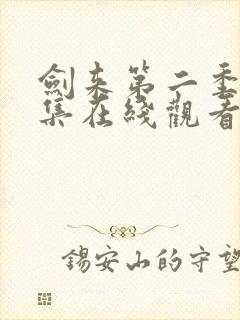 劍来第二季
集在綫觀看
錫安山的守望